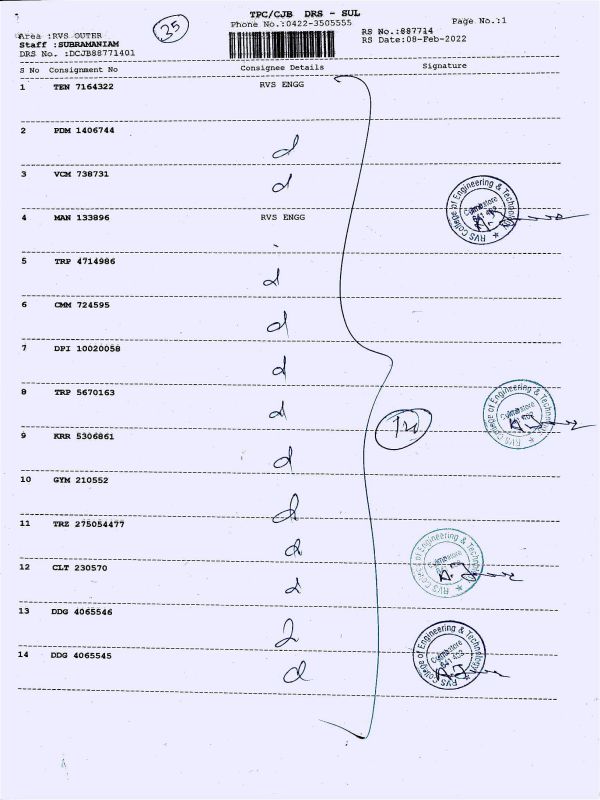 TPC/CJB DRS - SUL
Phone No.:0422-3505555
Page No.:1
35
Area :RVS OUTER
Staff :SUBRAMANIAM
DRS No. :DCJB88771401
RS No.:887714
RS Date:08-Feb-2022
S No Consignment No Consignee Details Signature
1 TEN 7164322 RVS ENGG
2 PDM 1406744
d
3 VCM 738731
d
RVS College of Engineering & Technology
Coimbatore
641 402
4 MAN 133896 RVS ENGG
5 TRP 4714986
d
6 CMM 724595
d
7 DPI 10020058
d
8 TRP 5670163
d
RVS College of Engineering & Technology
Coimbatore
9 KRR 5306861
d
10 GYM 210552
d
11 TRZ 275054477
d
RVS College of Engineering & Technology
Coimbatore
12 CLT 230570
d
13 DDG 4065546
RVS College of Engineering & Technology
Coimbatore
641 402
14 DDG 4065545
d